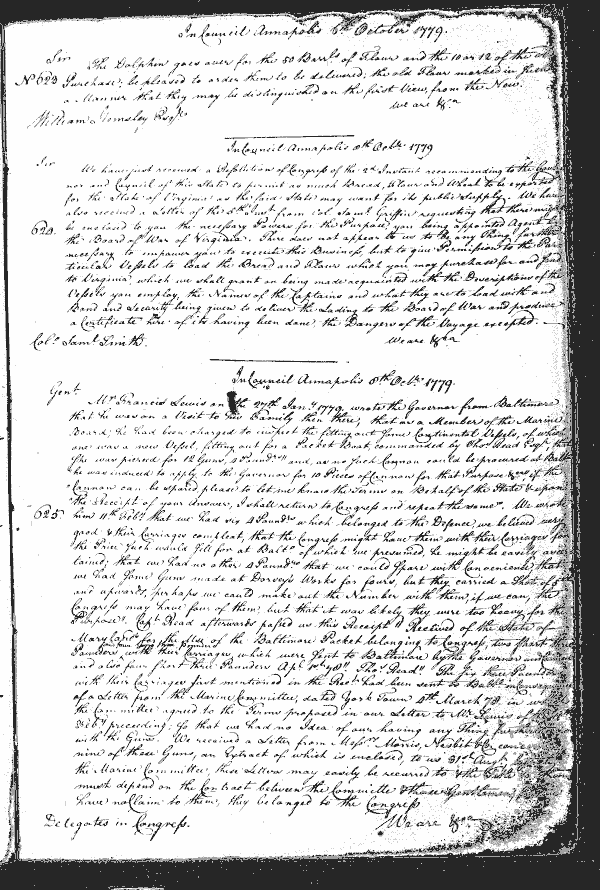 In Council Annapolis 6th October 1779.
Sir
No 623 The Dolphin goes over for the 50 Barrls of Flour and the 10 or 12 of the
Purchase; be pleased to order them to be delivered, the old Flour marked in such
a Manner that they may be distinguished on the first View, from the New.
We are &ca
William Hemsley Esqr
In Council Annapolis 8th Octbr 1779
Sir
We have just received a Resolution of Congress of the 2d Instant recommending to the Gover
nor and Council of this State to permit as much Bread, Flour and Wheat to be exported
for the State of Virginia as the said State may want for its public Supply. We have
also received a Letter of the 5th Inst from Col Saml Griffin requesting that there might
624. be enclosed to you the necessary Powers for the Purpose, you being appointed Agent by
the Board of War of Virginia. There does not appear to us to be any Thing further
necessary to empower you to execute this Business, but to give Permission to the Par
ticular Vessels to load the Bread and Flour which you may purchase for and send
to Virginia, which we shall grant on being made acquainted with the Descriptions of the
Vessels you employ, the Names of the Captains and what they are to load with and
Bond and Security being given to deliver the Lading to the Board of War and produce
a Certificate here of its having been done, the Dangers of the Voyage excepted.
We are &ca
Colo Saml Smith.
In Council Annapolis 8th Octbr 1779.
Gent
Mr Francis Lewis on the 27th Jany 1779, wrote the Governor from Baltimore
that he was on a Visit to his Family then there; that as a Member of the Marine
Board, he had been charged to inspect the fitting out some Continental Vessels, of which
one was a new Vessel, fitting out for a Packet Boat, commanded by Thos Read Esqr that
She was pierced for 12 Guns, 4 Pounders and, as no such Cannon could be procured at Balt
he was induced to apply to the Governor for 10 Pieces of Cannon for that Purpose &ca if the
Cannon can be spared please to let me know the Terms on Behalf of the State & upon
the Receipt of your Answer, I shall return to Congress and repeat the same. We wrote
625. him 11th Febry that we had six 4 Pounders which belonged to the Defence, we believed very
good & their Carriages compleat, that the Congress might have them with their Carriages for
the Price such would sell for at Balto of which we presumed, he might be easily ascer
tained; that we had no other 4 Pounders that we could spare with Convenience, that
we had some Guns made at Dorsey's Works for fours, but they carried a Shot of
and upwards, perhaps we could make out the Number with them, if we can, the
Congress may have four of them, but that it was likely they were too heavy for the
Purpose. Capt Read afterwards passed us this Receipt "Received of the State of
Maryland for the Use of the Baltimore Packet belonging to Congress, two short three
Pounders with their Carriages, which were sent to Baltimore by the Governor
and also four short three Pounders Apl 1st 1778. Thos Read." The six three Pounders
with their Carriages first mentioned in the Rect had been sent to Balto in consequence
of a Letter from the Marine Committee, dated York Town 4th March 78, in
the Committee agreed to the Terms proposed in our Letter to Mr Lewis of
Febry preceding. So that we had no Idea of our having any Thing further
with the Guns. We received a Letter from Messrs Morris, Nesbit & Co
nine of those Guns, an Extract of which is enclosed, to us 31st Augt
the Marine Committee, these Letters may easily be recurred to &
must depend on the Contract between the Committee & those Gentlemen,
have no Claim to them, they belonged to the Congress
We are &ca
Delegates in Congress.